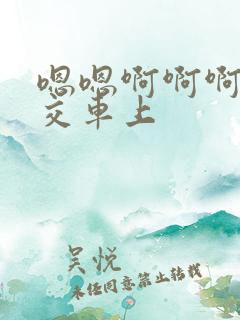 嗯嗯啊啊啊
交车上
吴悦
未经同意禁止转载